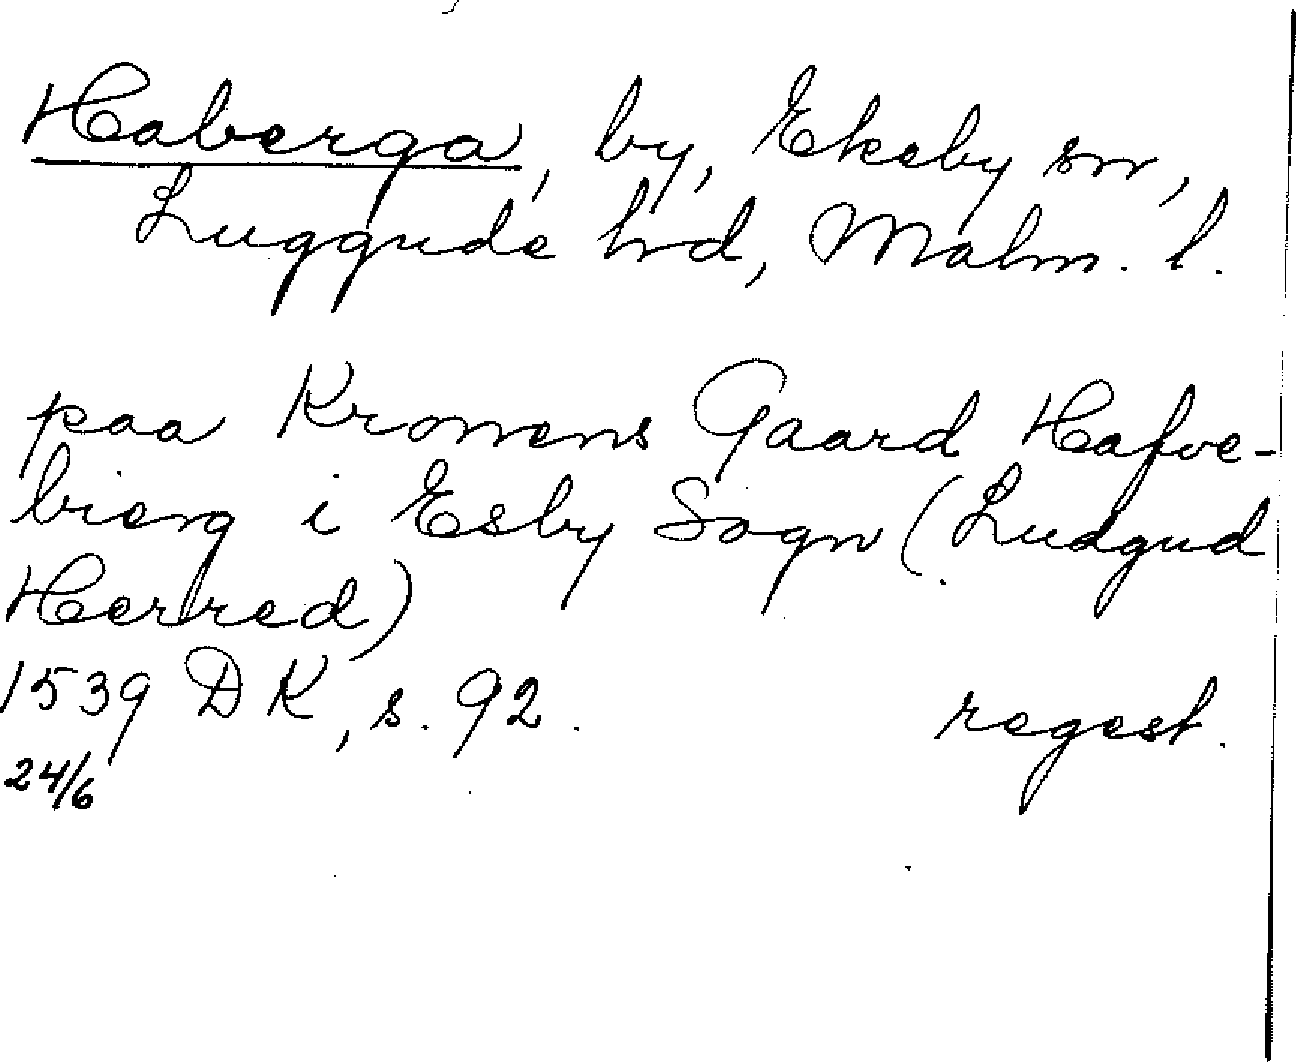 Haberga, by, Ekeby sn,
Luggude hrd, Malm. l.
paa Kronens Gaard Hafve-
bierg i Esby Sogn (Ludgud
Herred)
1539 DK, s. 92. regest.
24/6